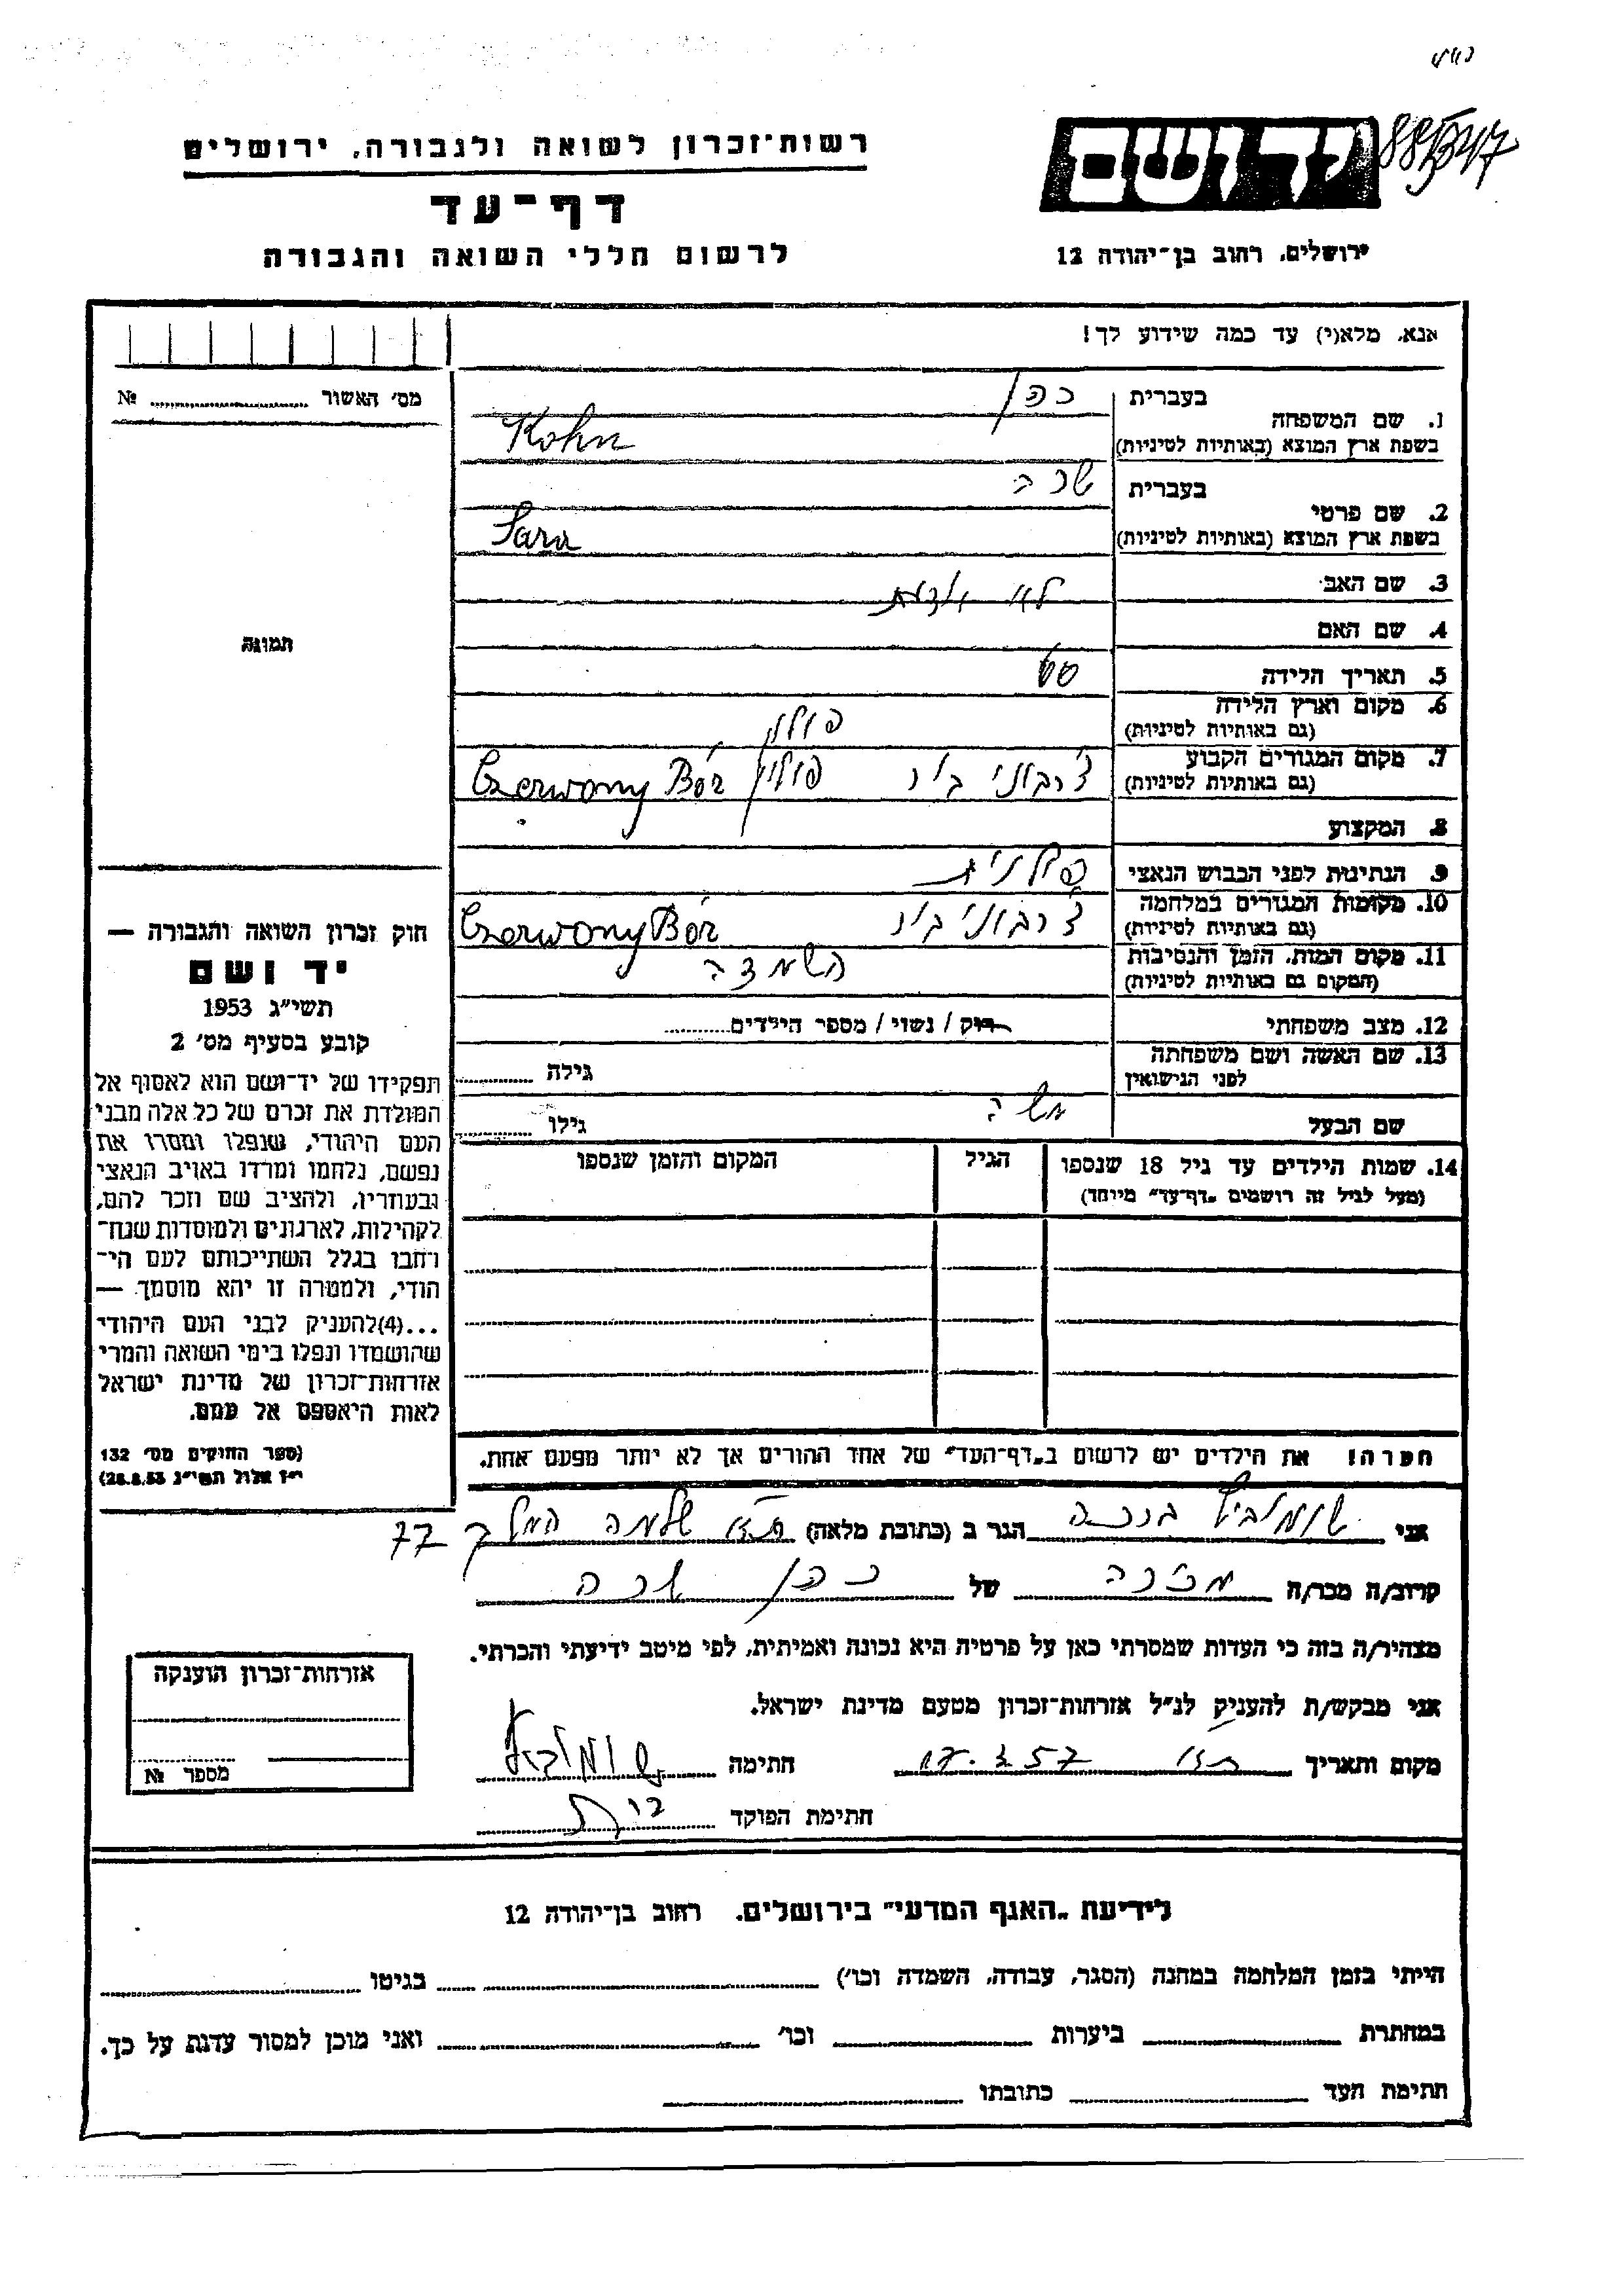 רשות־זכרון לשואה ולגבורה, ירושלים
דף־עד
לרשום חללי השואה והגבורה
יד ושם
ירושלים, רחוב בן־יהודה 12
אנא, מלא(י) עד כמה שידוע לך!
מס׳ האשור № ........
תמונה
1. שם המשפחה
בעברית כהן
בשפת ארץ המוצא (באותיות לטיניות) Kohn
2. שם פרטי
בעברית שרה
בשפת ארץ המוצא (באותיות לטיניות) Sara
3. שם האב לא יודעת
4. שם האם
5. תאריך הלידה
6. מקום וארץ הלידה
(גם באותיות לטיניות) פולין
7. מקום המגורים הקבוע
(גם באותיות לטיניות) צ׳רבוני בור פולין Czerwony Bór
8. המקצוע
9. הנתינות לפני הכבוש הנאצי פולנית
10. מקומות המגורים במלחמה
(גם באותיות לטיניות) צ׳רבוני בור Czerwony Bór
11. מקום המות, הזמן והנסיבות
(המקום גם באותיות לטיניות) השמדה
12. מצב משפחתי רוק / נשוי / מספר הילדים........
13. שם האשה ושם משפחתה
לפני הנישואין גילה ........
שם הבעל משה גילו ........
14. שמות הילדים עד גיל 18 שנספו
(מעל לגיל זה רושמים „דף־עד״ מיוחד)
הגיל
המקום והזמן שנספו
חוק זכרון השואה והגבורה —
יד ושם
תשי״ג 1953
קובע בסעיף מס׳ 2
תפקידו של יד־ושם הוא לאסוף אל
המולדת את זכרם של כל אלה מבני
העם היהודי, שנפלו ומסרו את
נפשם, נלחמו ומרדו באויב הנאצי
ובעוזריו, ולהציב שם וזכר להם,
לקהילות, לארגונים ולמוסדות שנח־
רחבו בגלל השתייכותם לעם הי־
הודי, ולמטרה זו יהא מוסמך —
...(4)להעניק לבני העם היהודי
שהושמדו ונפלו בימי השואה והמרי
אזרחות־זכרון של מדינת ישראל
לאות היאספם אל עמם.
(ספר החוקים מס׳ 132
י״ז אלול תשי״ג 28.8.53)
הערה! את הילדים יש לרשום ב„דף־העד״ של אחד ההורים אך לא יותר מפעם אחת.
אני הגר ב (כתובת מלאה) שלמה המלך 77
קרוב/ה מכר/ה מכרה של כהן שרה
מצהיר/ה בזה כי העדות שמסרתי כאן על פרטיה היא נכונה ואמיתית, לפי מיטב ידיעתי והכרתי.
אני מבקש/ת להעניק לנ״ל אזרחות־זכרון מטעם מדינת ישראל.
מקום ותאריך חתימה
חתימת הפוקד
אזרחות־זכרון הוענקה
מספר №
לידיעת „האגף המדעי״ בירושלים, רחוב בן־יהודה 12
הייתי בזמן המלחמה במחנה (הסגר, עבודה, השמדה וכו׳) בגיטו
במחתרת ביערות וכו׳ ואני מוכן למסור עדות על כך.
חתימת העד כתובתו